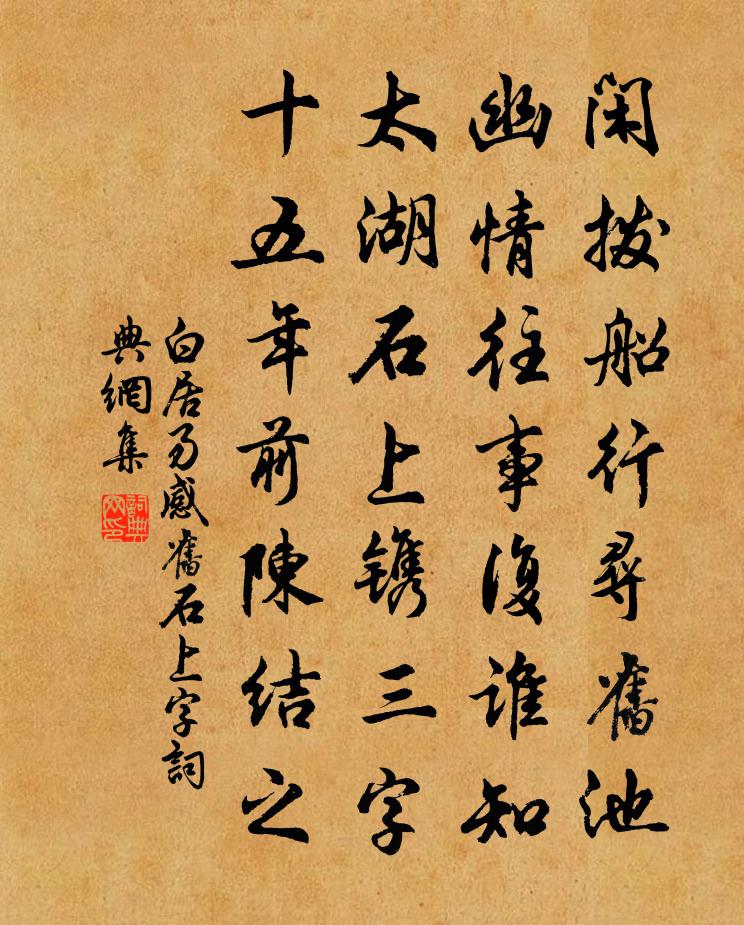 闲拨船行尋舊池
幽情往事復誰知
太湖石上鐫三字
十五年前陳结之
白居易感舊石上字詞
典網集
詞典網印